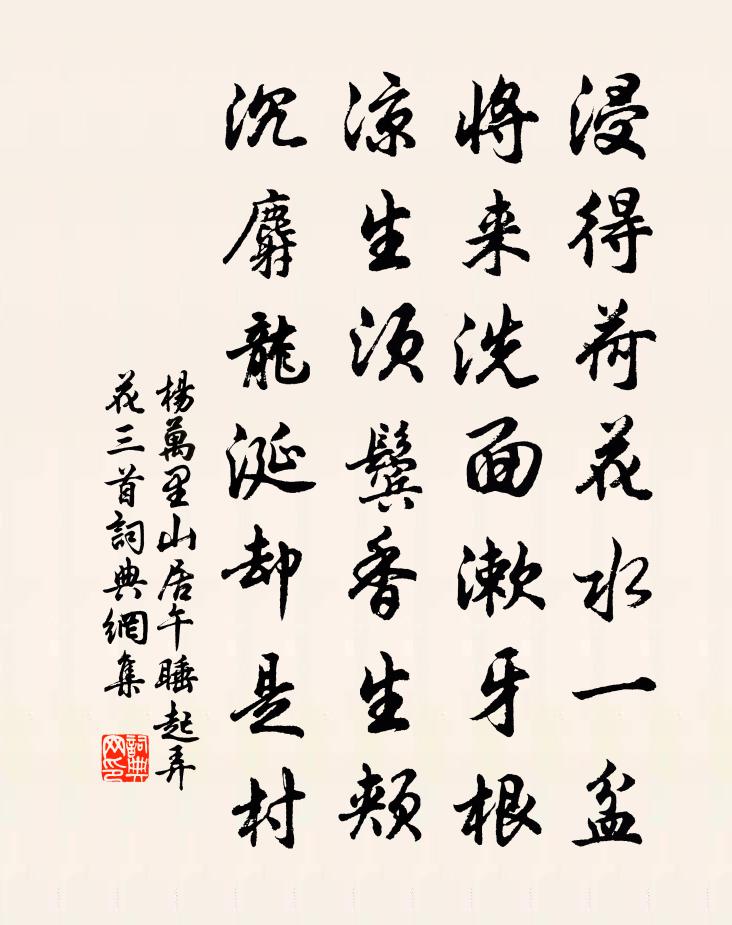 浸得荷花水一盆
将来洗面漱牙根
凉生须鬓香生颊
沉麝龍涎却是村
楊萬里山居午睡起弄
花三首詞典網集
詞典
网印